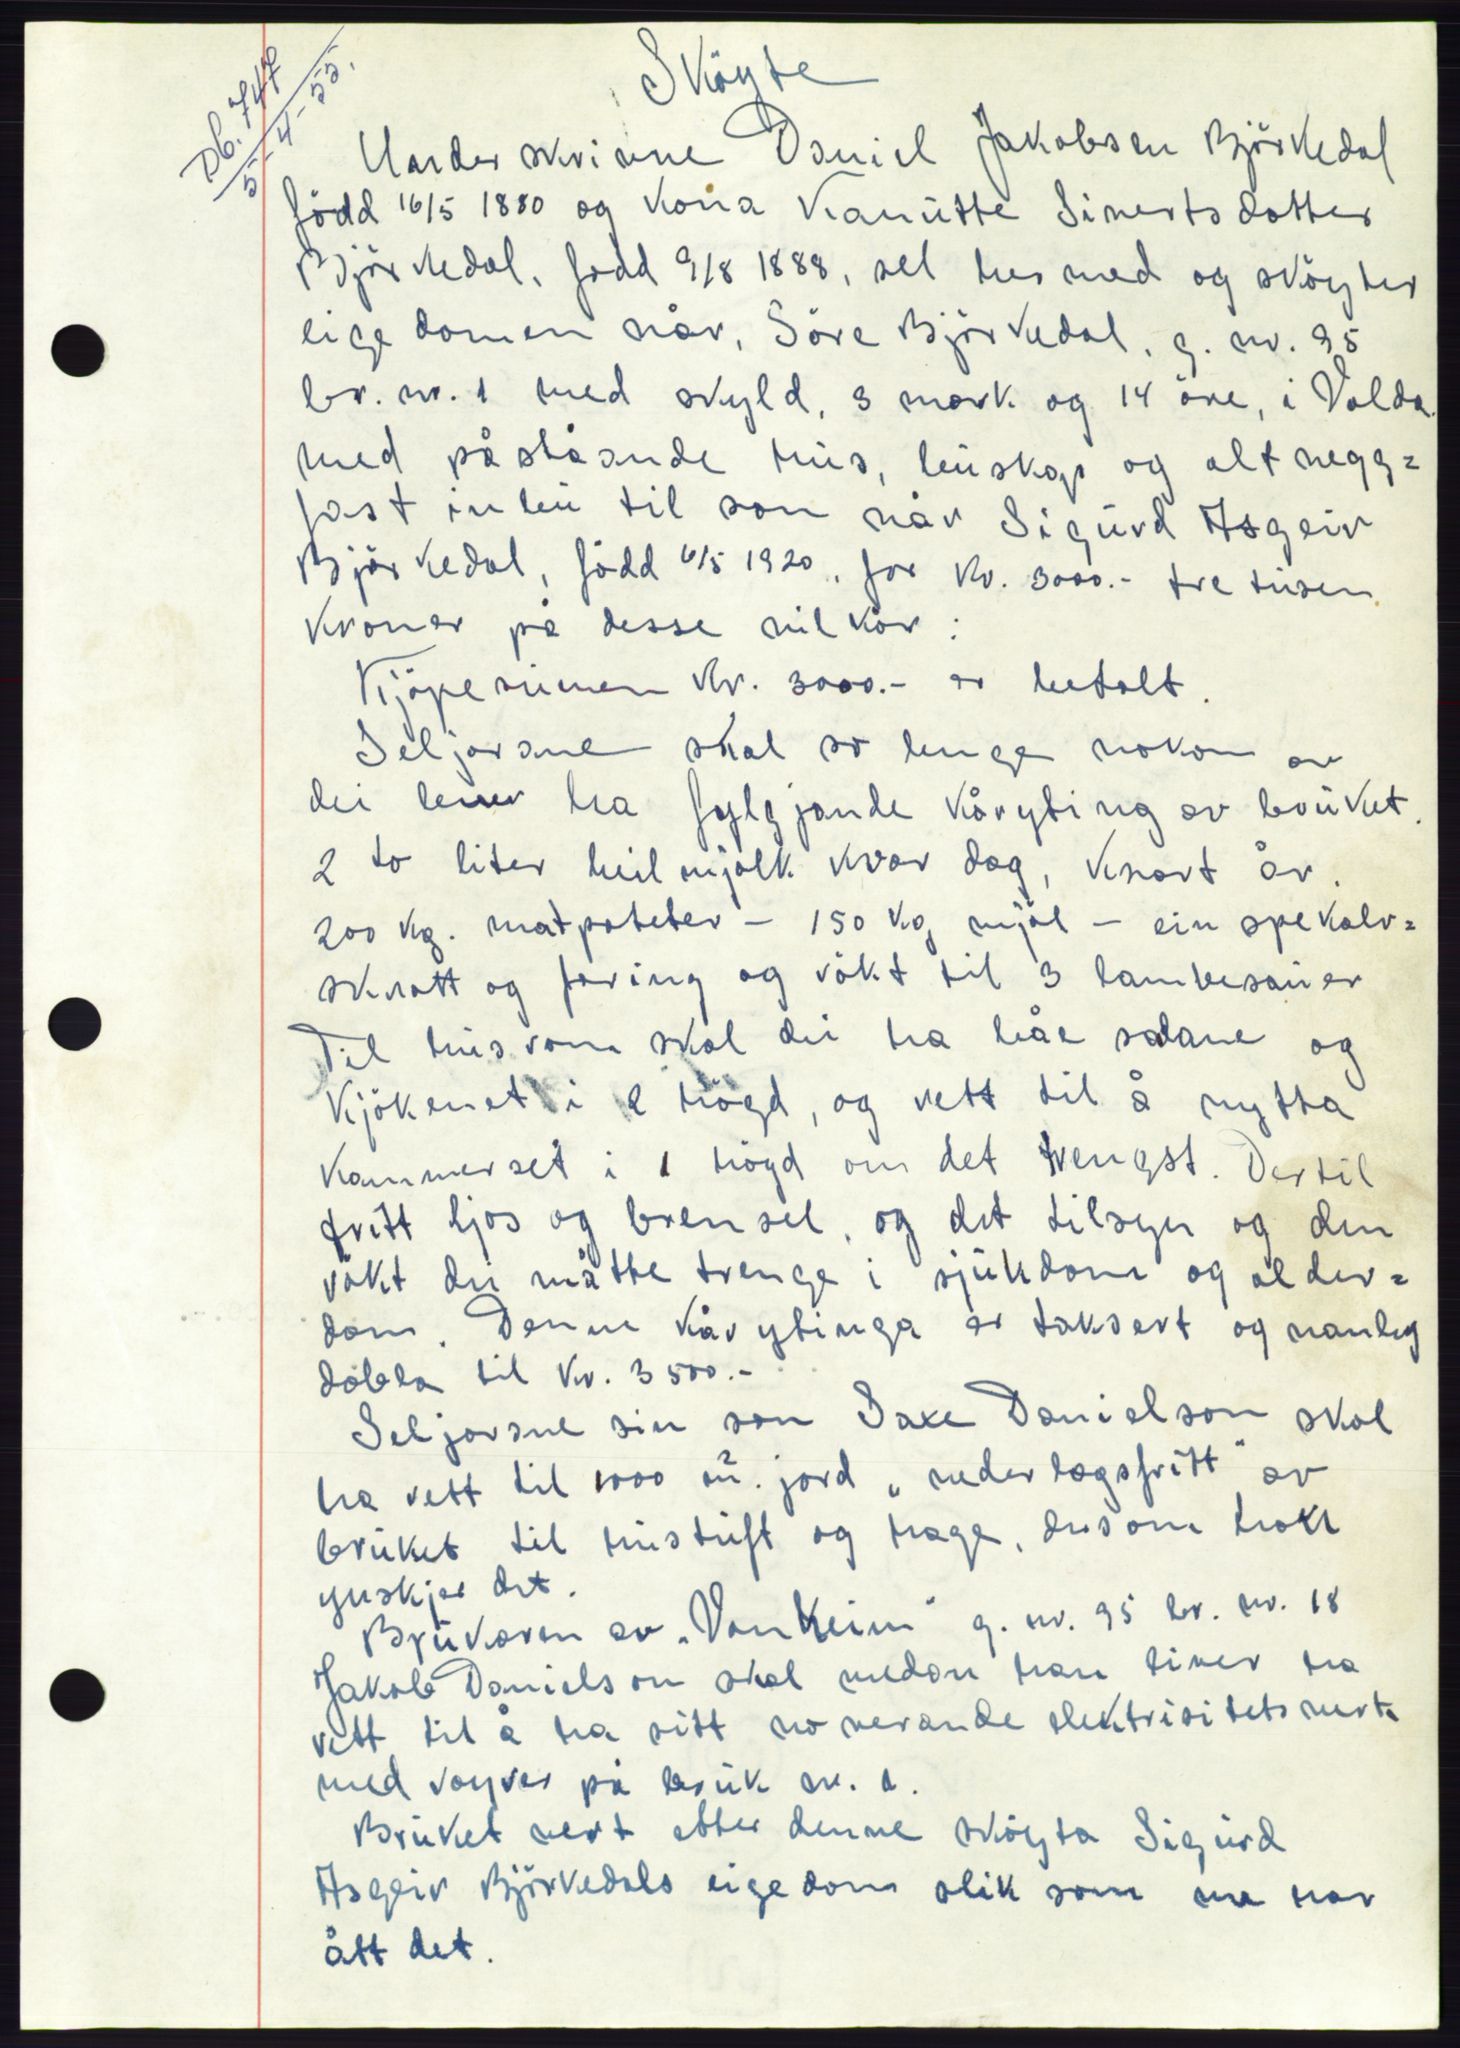 Db. 747
5-4-55.
Sköyte
Underskrivne Daniel Jakobsen Björkedal
född 16/5 1880 og kona Kanutte Sivertsdotter
Björkedal, född 9/8 1888, sel hermed og sköyter
eigedomen vår, Söre Björkedal, g. nr. 95
br. nr. 1 med skyld, 3 mark og 14 öre, i Volda
med påståande hus, buskap og alt vegg=
fast inbu til son vår Sigurd Asgeir
Björkedal, född 6/5 1920, for kr. 3000.- tretusen
kroner på desse vilkår:
Kjöpesumen kr. 3000.- er betalt.
Seljarane skal so lenge nokon av
dei lever ha fylgjande kåryting av bruket.
2 to liter heilmjölk kvar dag, kvart år.
200 kg. matpoteter - 150 kg mjöl - ein spekalv=
skrott og foring og rökt til 3 lambesauer
Til husrom skal dei ha båe salane og
kjökenet i 2 högd, og rett til å nytta
kammerset i 1 högd om det trengst. Dertil
fritt ljos og brensel, og det tilsyn og den
rökt dei måtte trenge i sjukdom og alder=
dom. Denne kårytinga er taksert og vanleg
dobla til kr. 3500.-
Seljarane sin son Saxe Danielson skal
ha rett til 1000 m². jord "vederlagsfritt" av
bruket til hustuft og hage, dersom han
ynskjer det.
Brukaren av "Vonheim" g. nr. 95 br. nr. 18
Jakob Danielson skal medan han liver ha
rett til å ha sitt noverande elektrisitetsverk
med röyrer på bruk nr. 1.
Bruket vert etter denne sköyta Sigurd
Asgeir Björkedals eigedom slik som me har
ått det.